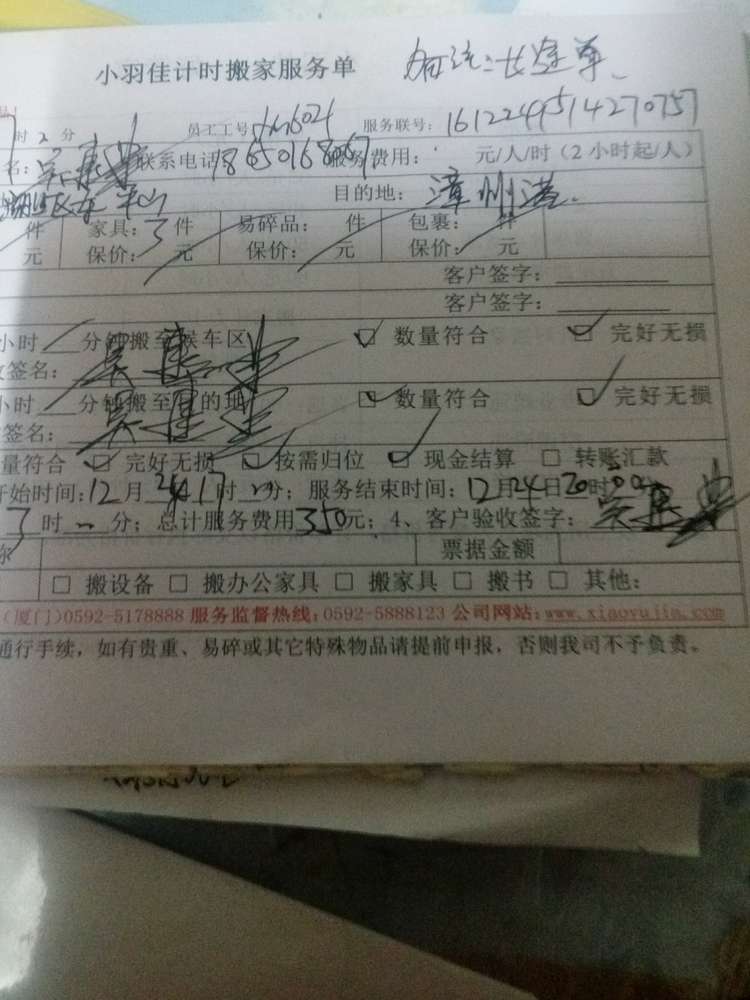 小羽佳计时搬家服务单
时2分 员工工号: 服务联号:
名: 联系电话 服务费用: 元/人/时（2小时起/人）
目的地: 漳州港
件 家具:3件 易碎品: 件 包裹: 件
元 保价: 元 保价: 元 保价: 元
客户签字:
客户签字:
小时 分钟搬至候车区 ☑ 数量符合 ☑ 完好无损
签名:
小时 分钟搬至目的地 ☑ 数量符合 ☑ 完好无损
签名:
量符合 ☑ 完好无损 ☑ 按需归位 ☑ 现金结算 □ 转账汇款
开始时间:12月24日17时 分；服务结束时间:12月24日20时00
3时 分；总计服务费用350元；4、客户验收签字:
票据金额
□ 搬设备 □ 搬办公家具 □ 搬家具 □ 搬书 □ 其他:
（厦门）0592-5178888 服务监督热线:0592-5888123 公司网站:www.xiaoyujia.com
通行手续，如有贵重、易碎或其它特殊物品请提前申报，否则我司不予负责。